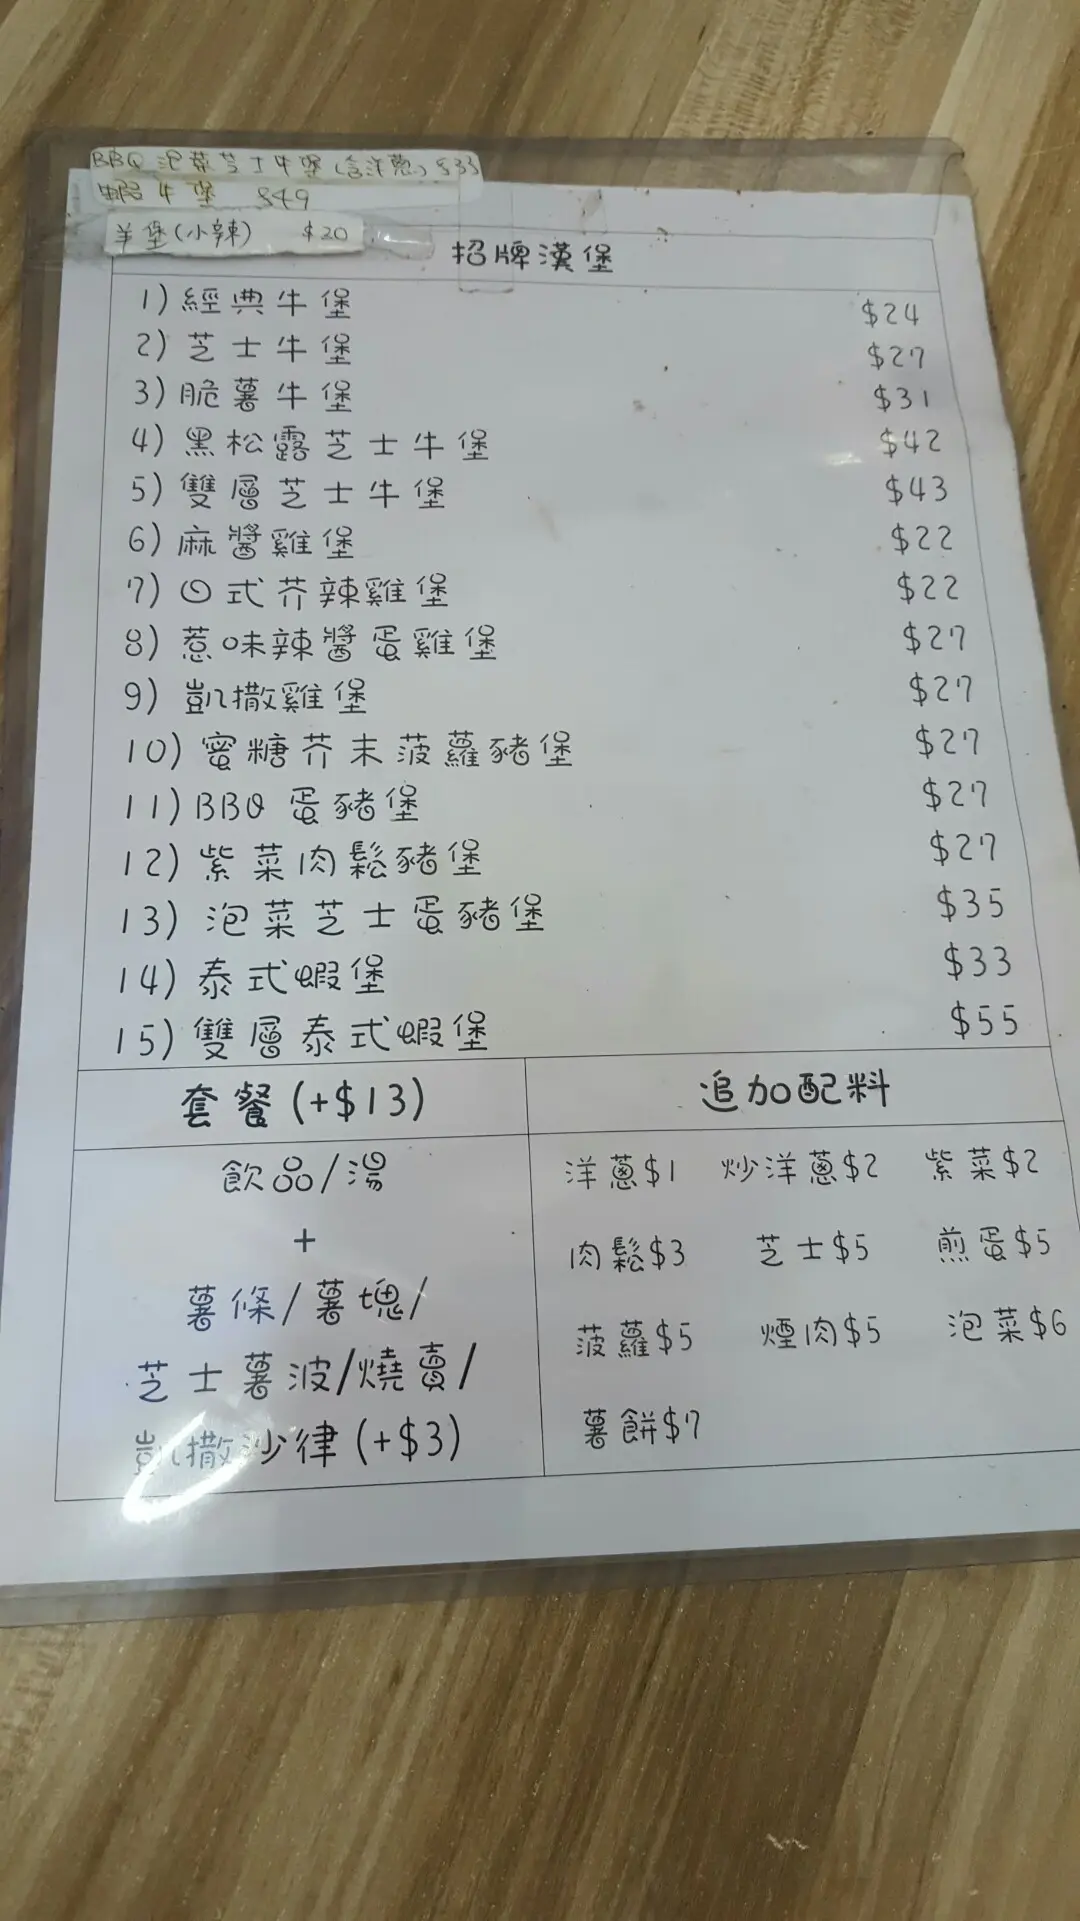 BBQ 泡菜芝士牛堡(含洋蔥) $33
蝦牛堡 $49
羊堡(小辣) $20
招牌漢堡
1) 經典牛堡 $24
2) 芝士牛堡 $27
3) 脆薯牛堡 $31
4) 黑松露芝士牛堡 $42
5) 雙層芝士牛堡 $43
6) 麻醬雞堡 $22
7) 日式芥辣雞堡 $22
8) 惹味辣醬蛋雞堡 $27
9) 凱撒雞堡 $27
10) 蜜糖芥末菠蘿豬堡 $27
11) BBQ 蛋豬堡 $27
12) 紫菜肉鬆豬堡 $27
13) 泡菜芝士蛋豬堡 $35
14) 泰式蝦堡 $33
15) 雙層泰式蝦堡 $55
套餐 (+$13)
飲品/湯
+
薯條/薯塊/
芝士薯波/燒賣/
凱撒沙律 (+$3)
追加配料
洋蔥$1 炒洋蔥$2 紫菜$2
肉鬆$3 芝士$5 煎蛋$5
菠蘿$5 煙肉$5 泡菜$6
薯餅$7